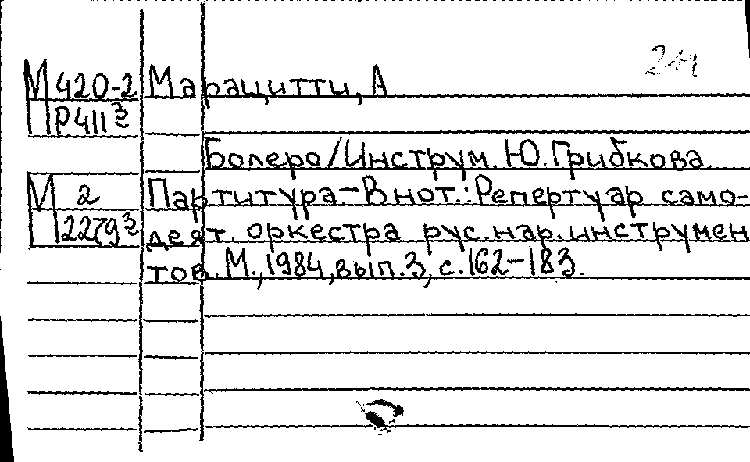 М 420-2 Марацитти, А
Р411 з
Болеро/Инструм. Ю. Грибкова.
М 2 Партитура.-В нот.: Репертуар само-
2279 з деят. оркестра рус. нар. инструмен
тов. М., 1984, вып. 3, с. 162-183.